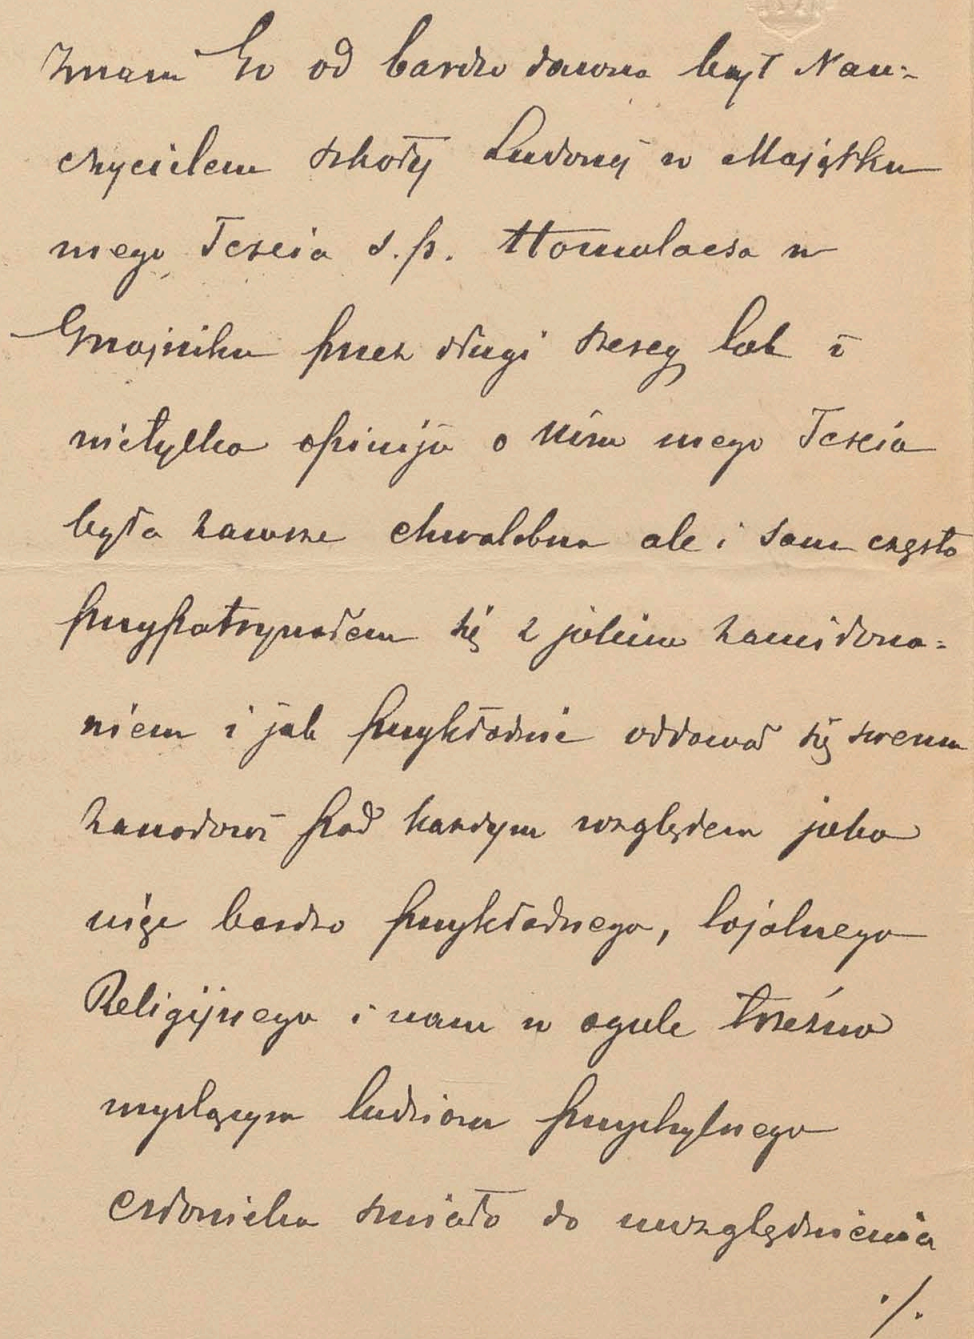 Znam Go od bardzo dawna był Nau-
czycielem szkoły Ludowej w Majątku
mego Teścia ś.p. Homolacsa w
Gnojniku przez długi szereg lat i
nietylko opinija o Nim mego Teścia
była zawsze chwalebna ale i sam często
przypatrywałem się z jakim zamiłowa-
niem i jak przykładnie oddawał się swemu
zawodowi pod każdym względem jako
więc bardzo przykładnego, lojalnego
Religijnego i nam w ogule trzeźwo
myślącym ludziom przychylnego
człowieka śmiało do uwzględnienia
./.